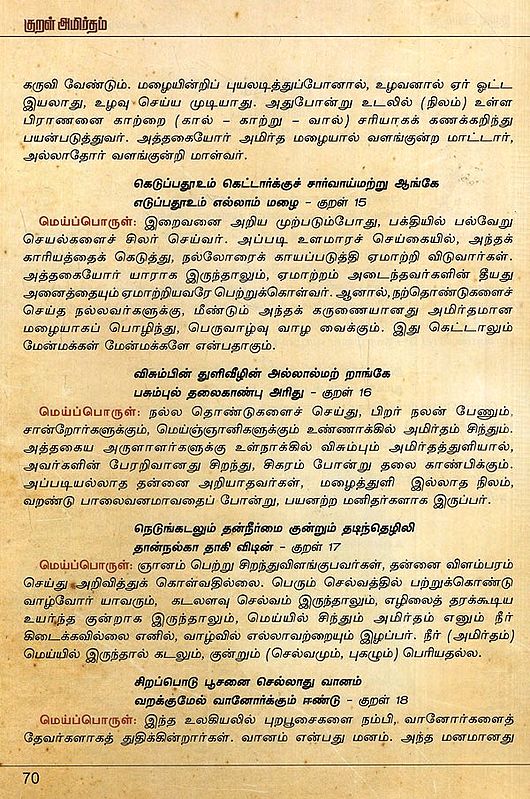 குறள் அமிர்தம்
கருவி வேண்டும். மழையின்றிப் புயலடித்துப்போனால், உழவனால் ஏர் ஓட்ட
இயலாது, உழவு செய்ய முடியாது. அதுபோன்று உடலில் (நிலம்) உள்ள
பிராணனை காற்றை (கால் – காற்று – வால்) சரியாகக் கணக்கறிந்து
பயன்படுத்துவர். அத்தகையோர் அமிர்த மழையால் வளங்குன்ற மாட்டார்,
அல்லாதோர் வளங்குன்றி மாள்வர்.
கெடுப்பதூஉம் கெட்டார்க்குச் சார்வாய்மற்று ஆங்கே
எடுப்பதூஉம் எல்லாம் மழை – குறள் 15
மெய்ப்பொருள்: இறைவனை அறிய முற்படும்போது, பக்தியில் பல்வேறு
செயல்களைச் சிலர் செய்வர். அப்படி உளமாரச் செய்கையில், அந்தக்
காரியத்தைக் கெடுத்து, நல்லோரைக் காயப்படுத்தி ஏமாற்றி விடுவார்கள்.
அத்தகையோர் யாராக இருந்தாலும், ஏமாற்றம் அடைந்தவர்களின் தீயது
அனைத்தையும் ஏமாற்றியவரே பெற்றுக்கொள்வர். ஆனால், நற்தொண்டுகளைச்
செய்த நல்லவர்களுக்கு, மீண்டும் அந்தக் கருணையானது அமிர்தமான
மழையாகப் பொழிந்து, பெருவாழ்வு வாழ வைக்கும். இது கெட்டாலும்
மேன்மக்கள் மேன்மக்களே என்பதாகும்.
விசும்பின் துளிவீழின் அல்லால்மற் றாங்கே
பசும்புல் தலைகாண்பு அரிது – குறள் 16
மெய்ப்பொருள்: நல்ல தொண்டுகளைச் செய்து, பிறர் நலன் பேணும்,
சான்றோர்களுக்கும், மெய்ஞ்ஞானிகளுக்கும் உண்ணாக்கில் அமிர்தம் சிந்தும்.
அத்தகைய அருளாளர்களுக்கு உள்நாக்கில் விசும்பும் அமிர்தத்துளியால்,
அவர்களின் பேரறிவானது சிறந்து, சிகரம் போன்று தலை காண்பிக்கும்.
அப்படியல்லாத தன்னை அறியாதவர்கள், மழைத்துளி இல்லாத நிலம்,
வறண்டு பாலைவனமாவதைப் போன்று, பயனற்ற மனிதர்களாக இருப்பர்.
நெடுங்கடலும் தன்நீர்மை குன்றும் தடிந்தெழிலி
தான்நல்கா தாகி விடின் – குறள் 17
மெய்ப்பொருள்: ஞானம் பெற்று சிறந்துவிளங்குபவர்கள், தன்னை விளம்பரம்
செய்து அறிவித்துக் கொள்வதில்லை. பெரும் செல்வத்தில் பற்றுக்கொண்டு
வாழ்வோர் யாவரும், கடலளவு செல்வம் இருந்தாலும், எழிலைத் தரக்கூடிய
உயர்ந்த குன்றாக இருந்தாலும், மெய்யில் சிந்தும் அமிர்தம் எனும் நீர்
கிடைக்கவில்லை எனில், வாழ்வில் எல்லாவற்றையும் இழப்பர். நீர் (அமிர்தம்)
மெய்யில் இருந்தால் கடலும், குன்றும் (செல்வமும், புகழும்) பெரியதல்ல.
சிறப்பொடு பூசனை செல்லாது வானம்
வறக்குமேல் வானோர்க்கும் ஈண்டு – குறள் 18
மெய்ப்பொருள்: இந்த உலகியலில் புறபூசைகளை நம்பி, வானோர்களைத்
தேவர்களாகத் துதிக்கின்றார்கள். வானம் என்பது மனம். அந்த மனமானது
70